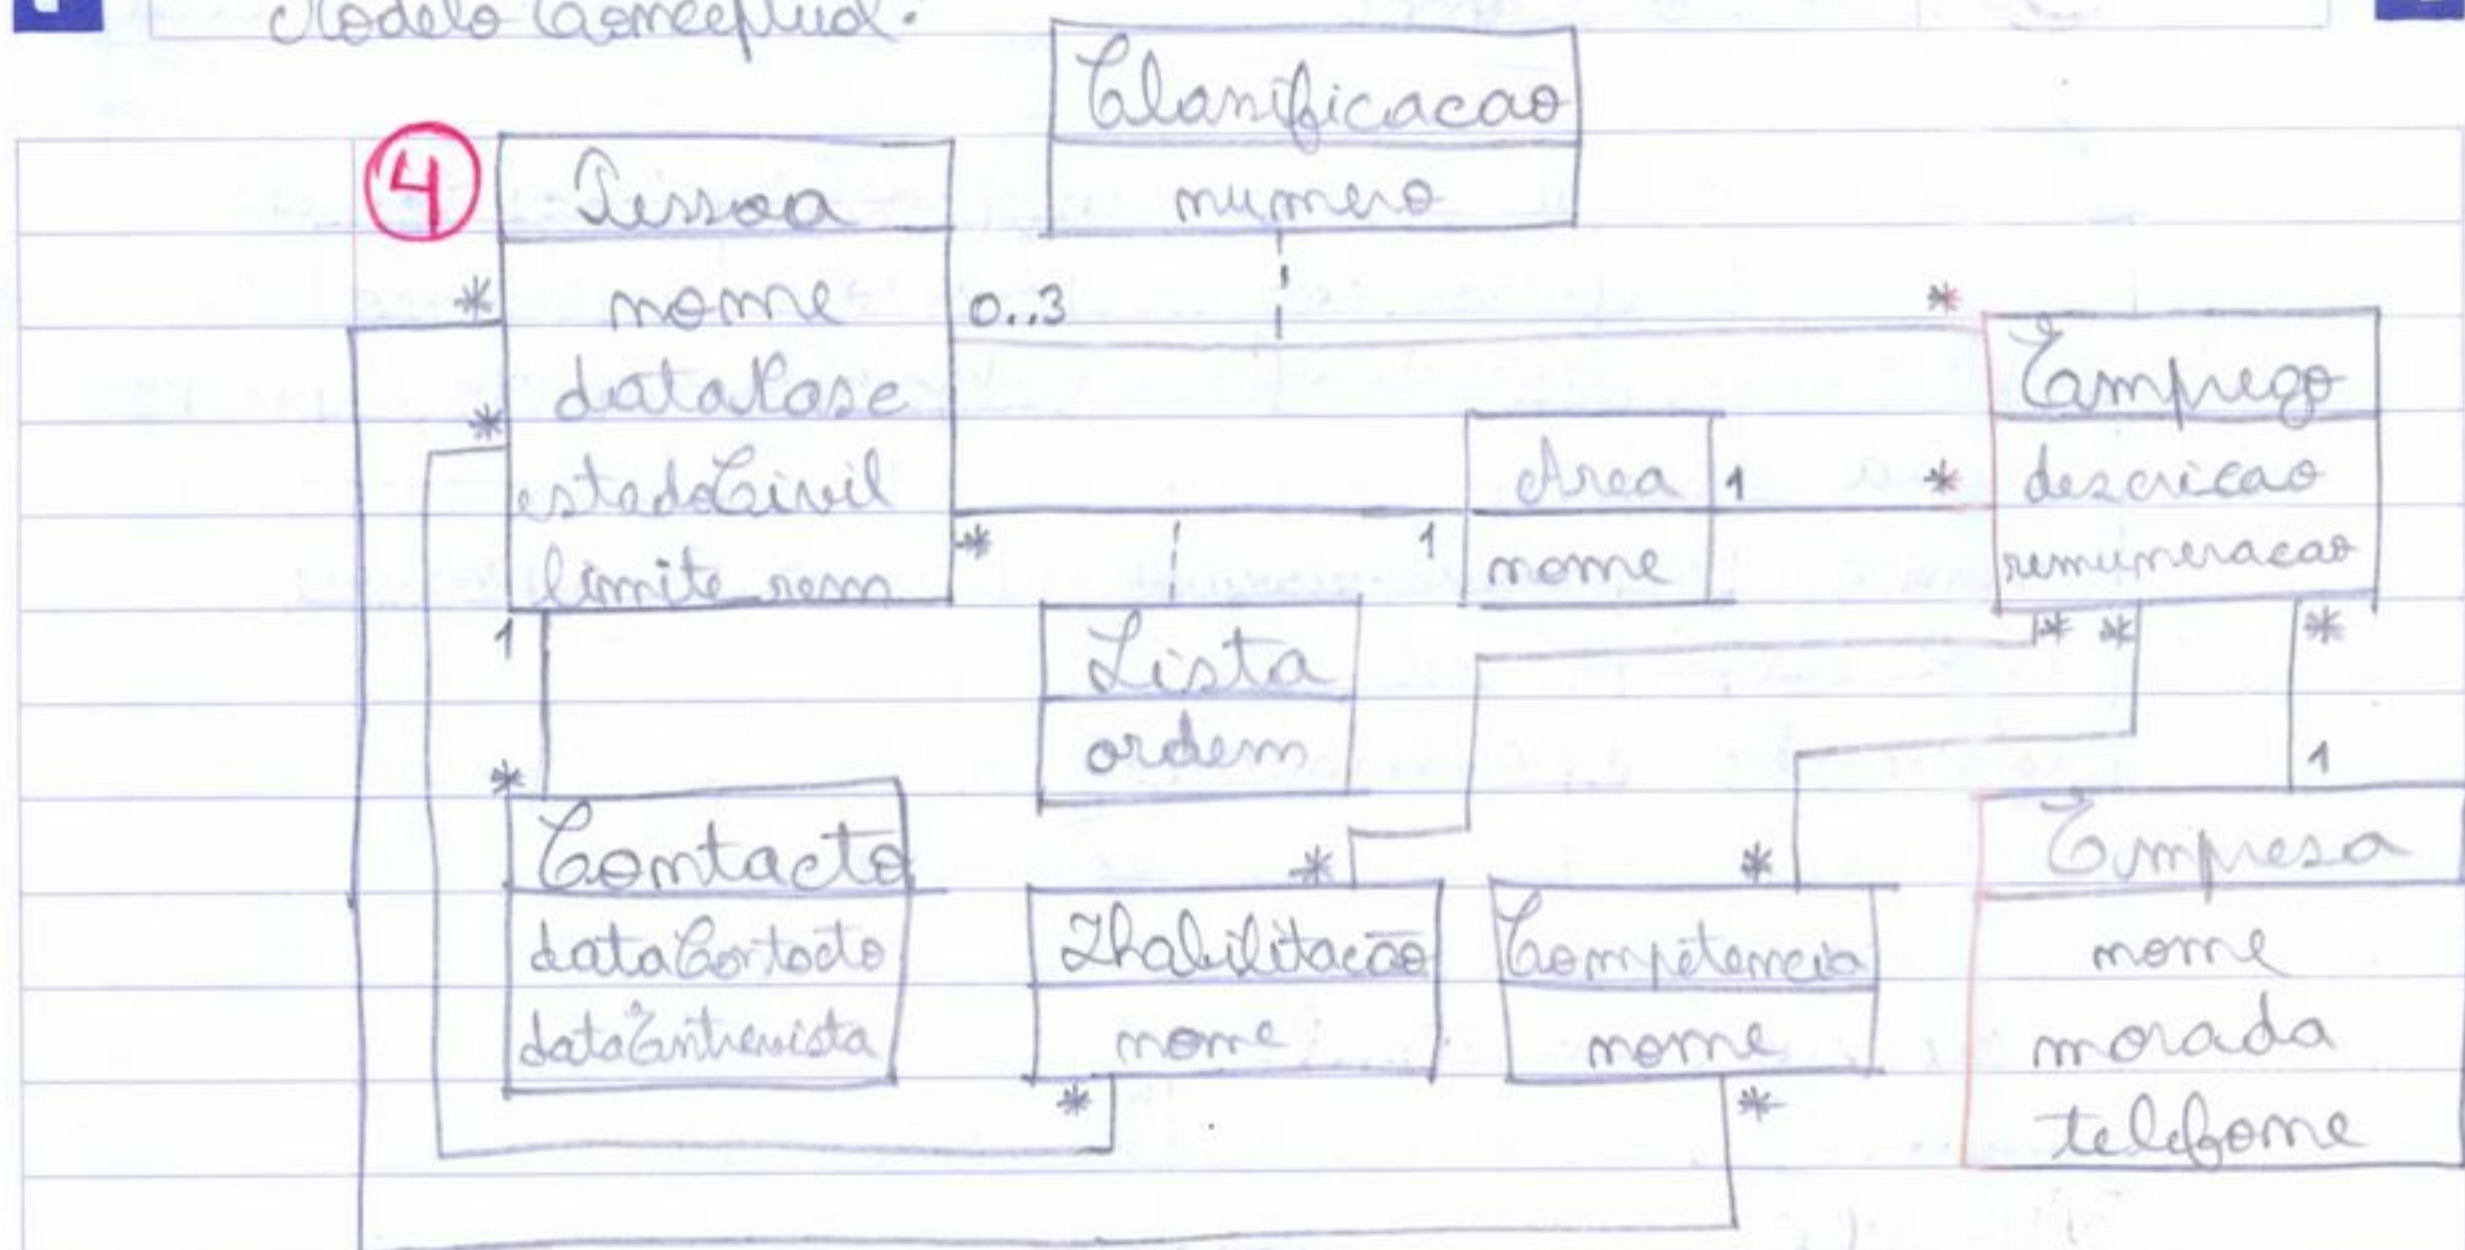 Modelo Conceptual:
Classificacao
numero
4
Pessoa
nome
dataNasc
estadoCivil
limite_rem
*
*
0..3
*
Emprego
descricao
remuneracao
Area
nome
1
*
*
1
Lista
ordem
1
*
*
*
*
1
Contacto
dataContacto
dataEntrevista
*
Habilitacão
nome
*
*
Competencia
nome
*
Empresa
nome
morada
telefone